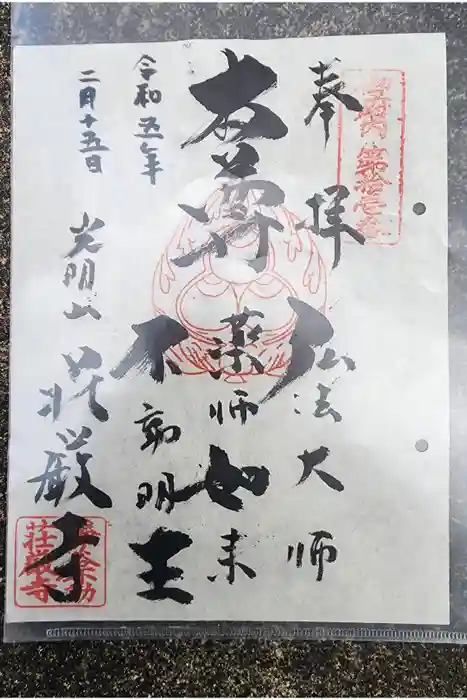 第拾壱番
奉拝
弘法大師
本尊
薬師如来
不動明王
令和五年
二月十五日
光明山
荘厳寺
荘厳寺